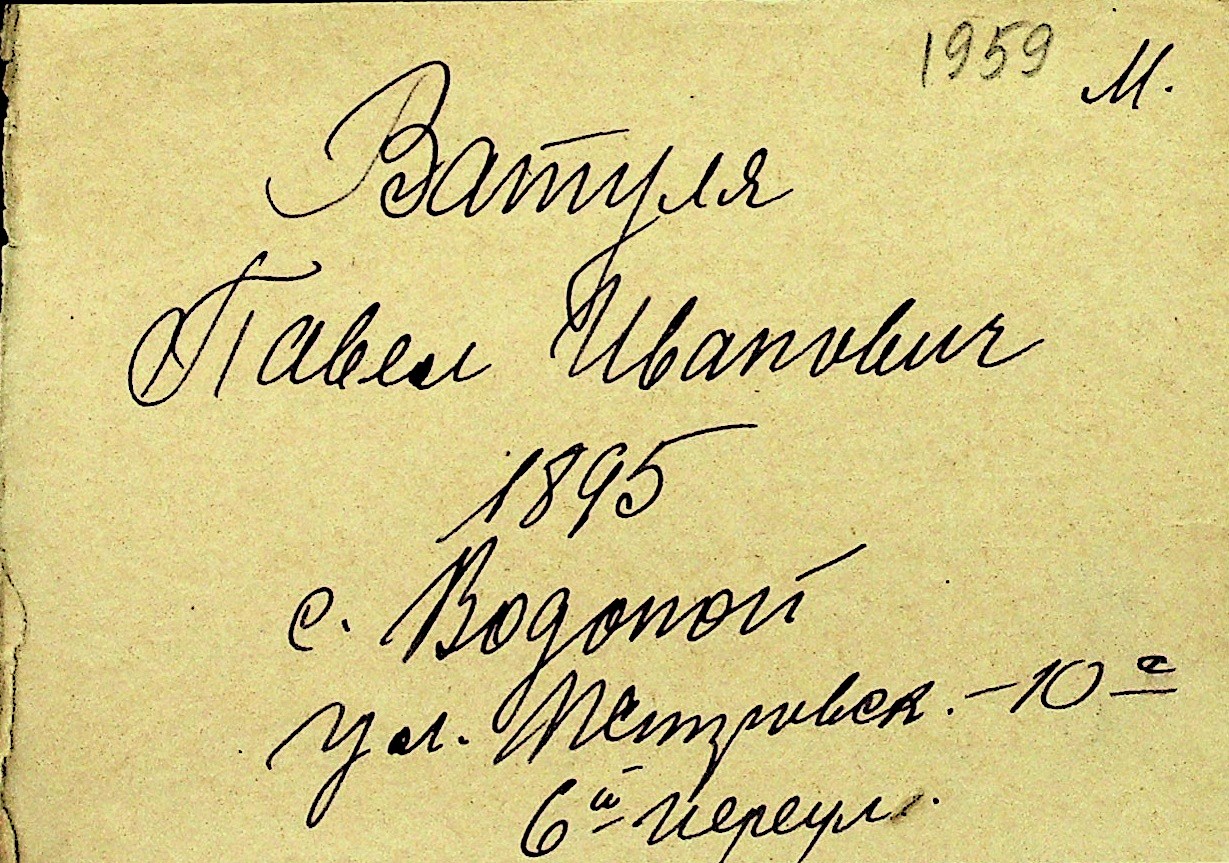 1959 м.
Ватуля
Павел Иванович
1895
с. Водопой
ул. Петровск. – 10 а
6й переул.